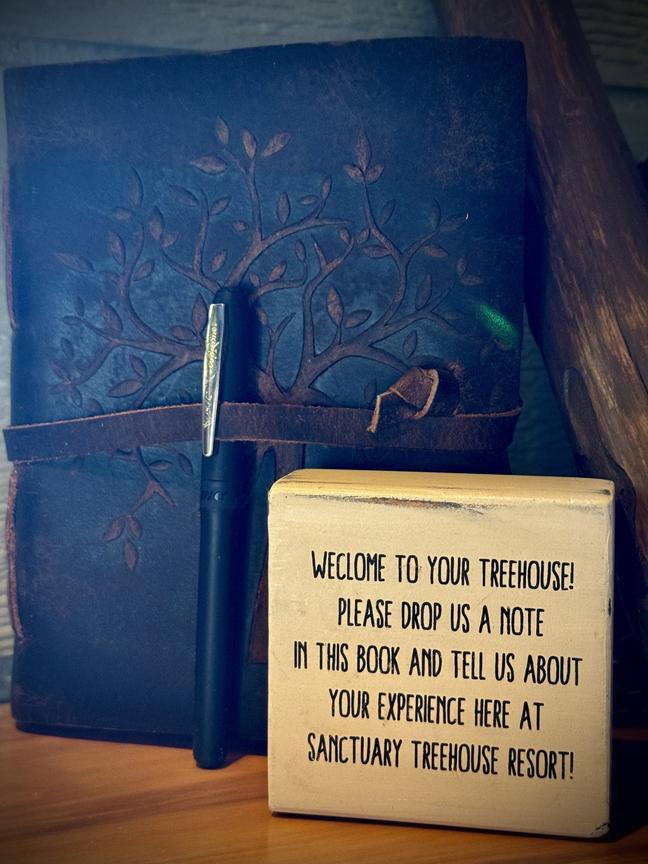 WECLOME TO YOUR TREEHOUSE!
PLEASE DROP US A NOTE
IN THIS BOOK AND TELL US ABOUT
YOUR EXPERIENCE HERE AT
SANCTUARY TREEHOUSE RESORT!